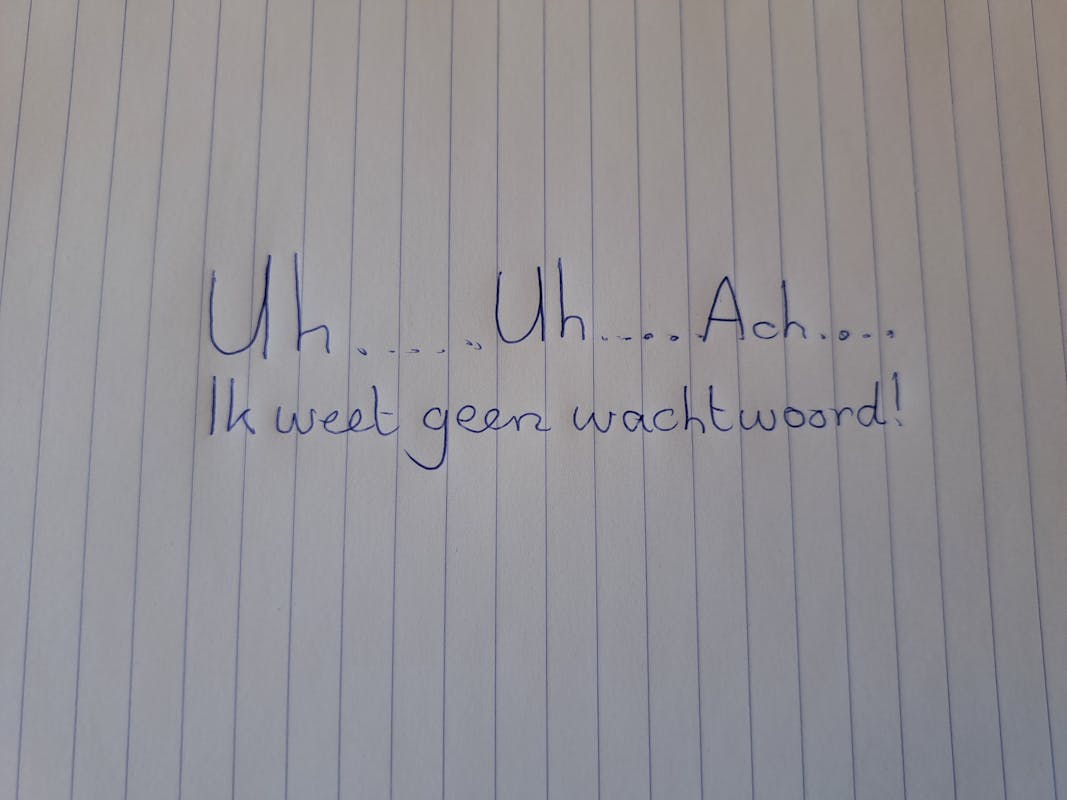 Uh.....Uh.....Ach....
Ik weet geen wachtwoord!